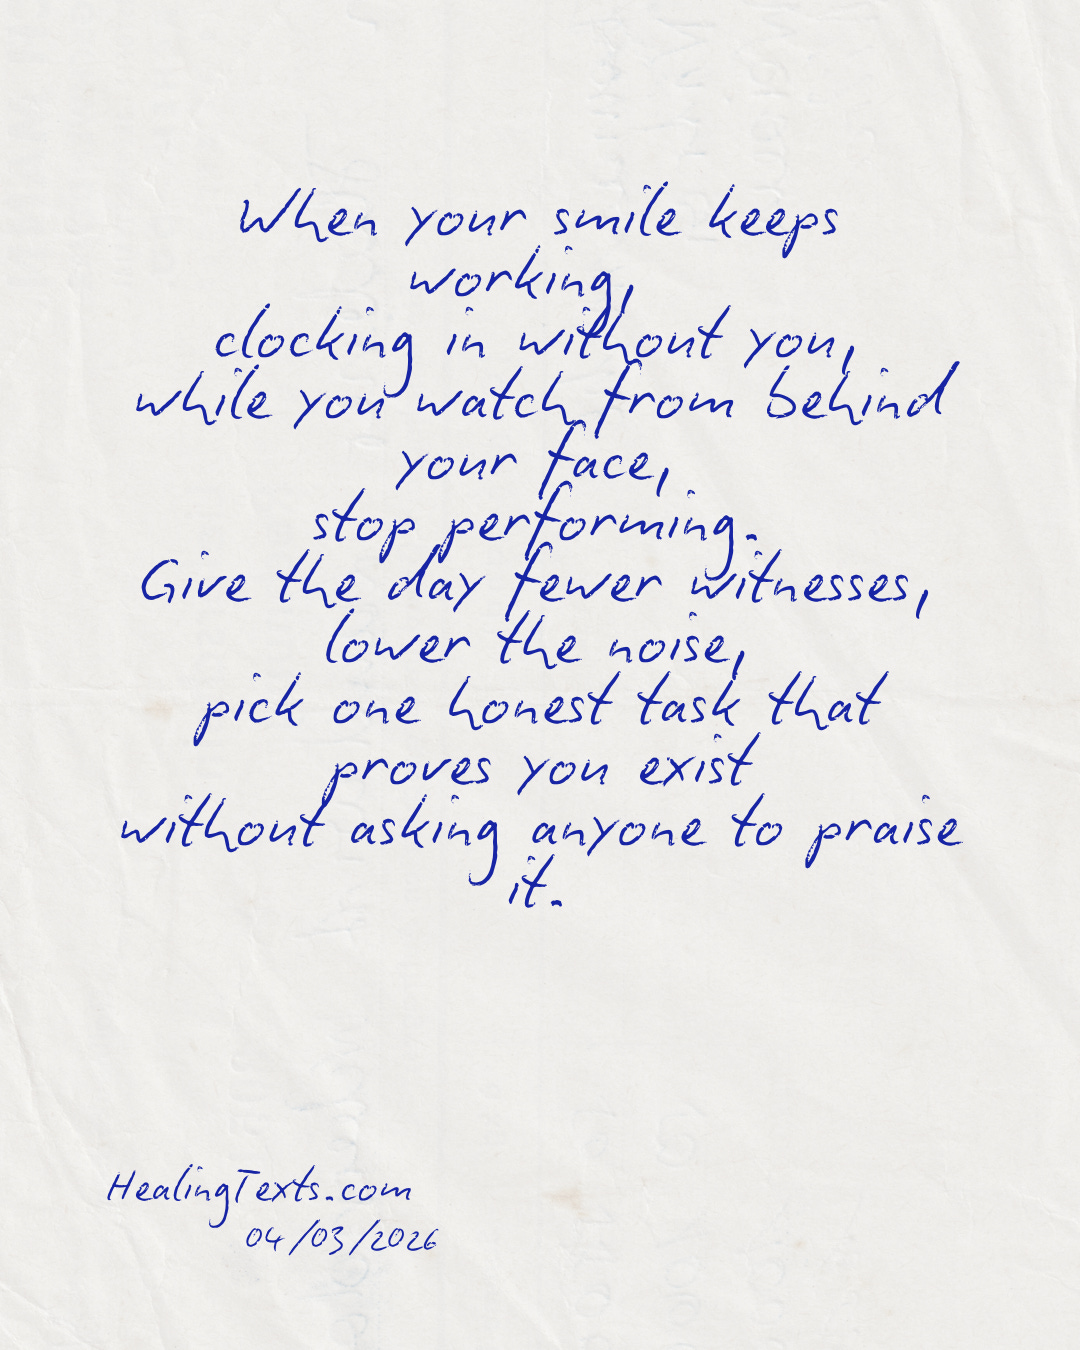 When your smile keeps
working,
clocking in without you,
while you watch from behind
your face,
stop performing.
Give the day fewer witnesses,
lower the noise,
pick one honest task that
proves you exist
without asking anyone to praise
it.
HealingTexts.com
04/03/2026